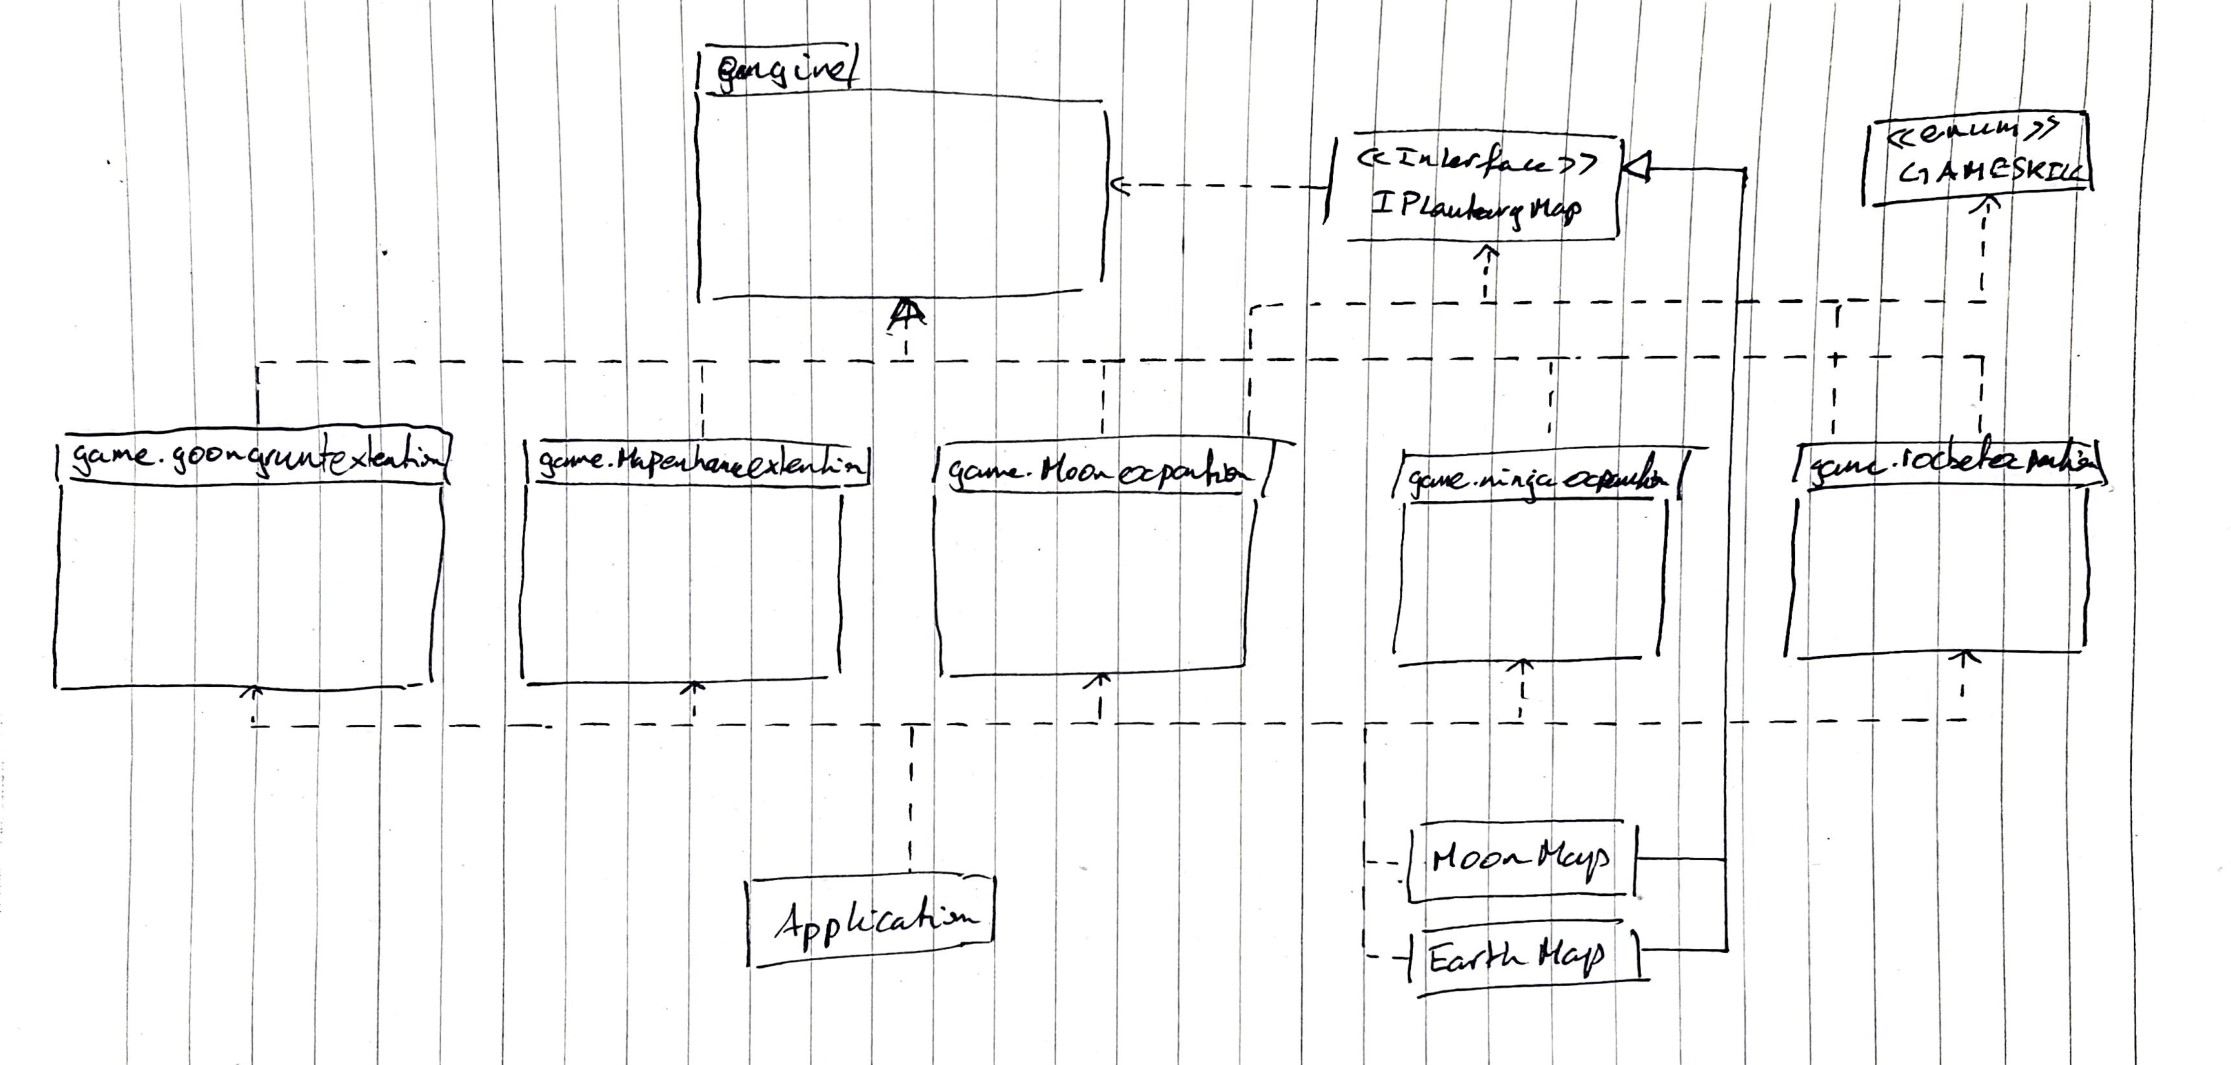 engine
<<Interface>>
IPlanetaryMap
<<enum>>
GAMESKILL
game.goongruntextention
game.Mapenhanceextention
game.Moonexpantion
game.ninjaexpantion
game.rocketexpantion
Application
MoonMap
EarthMap